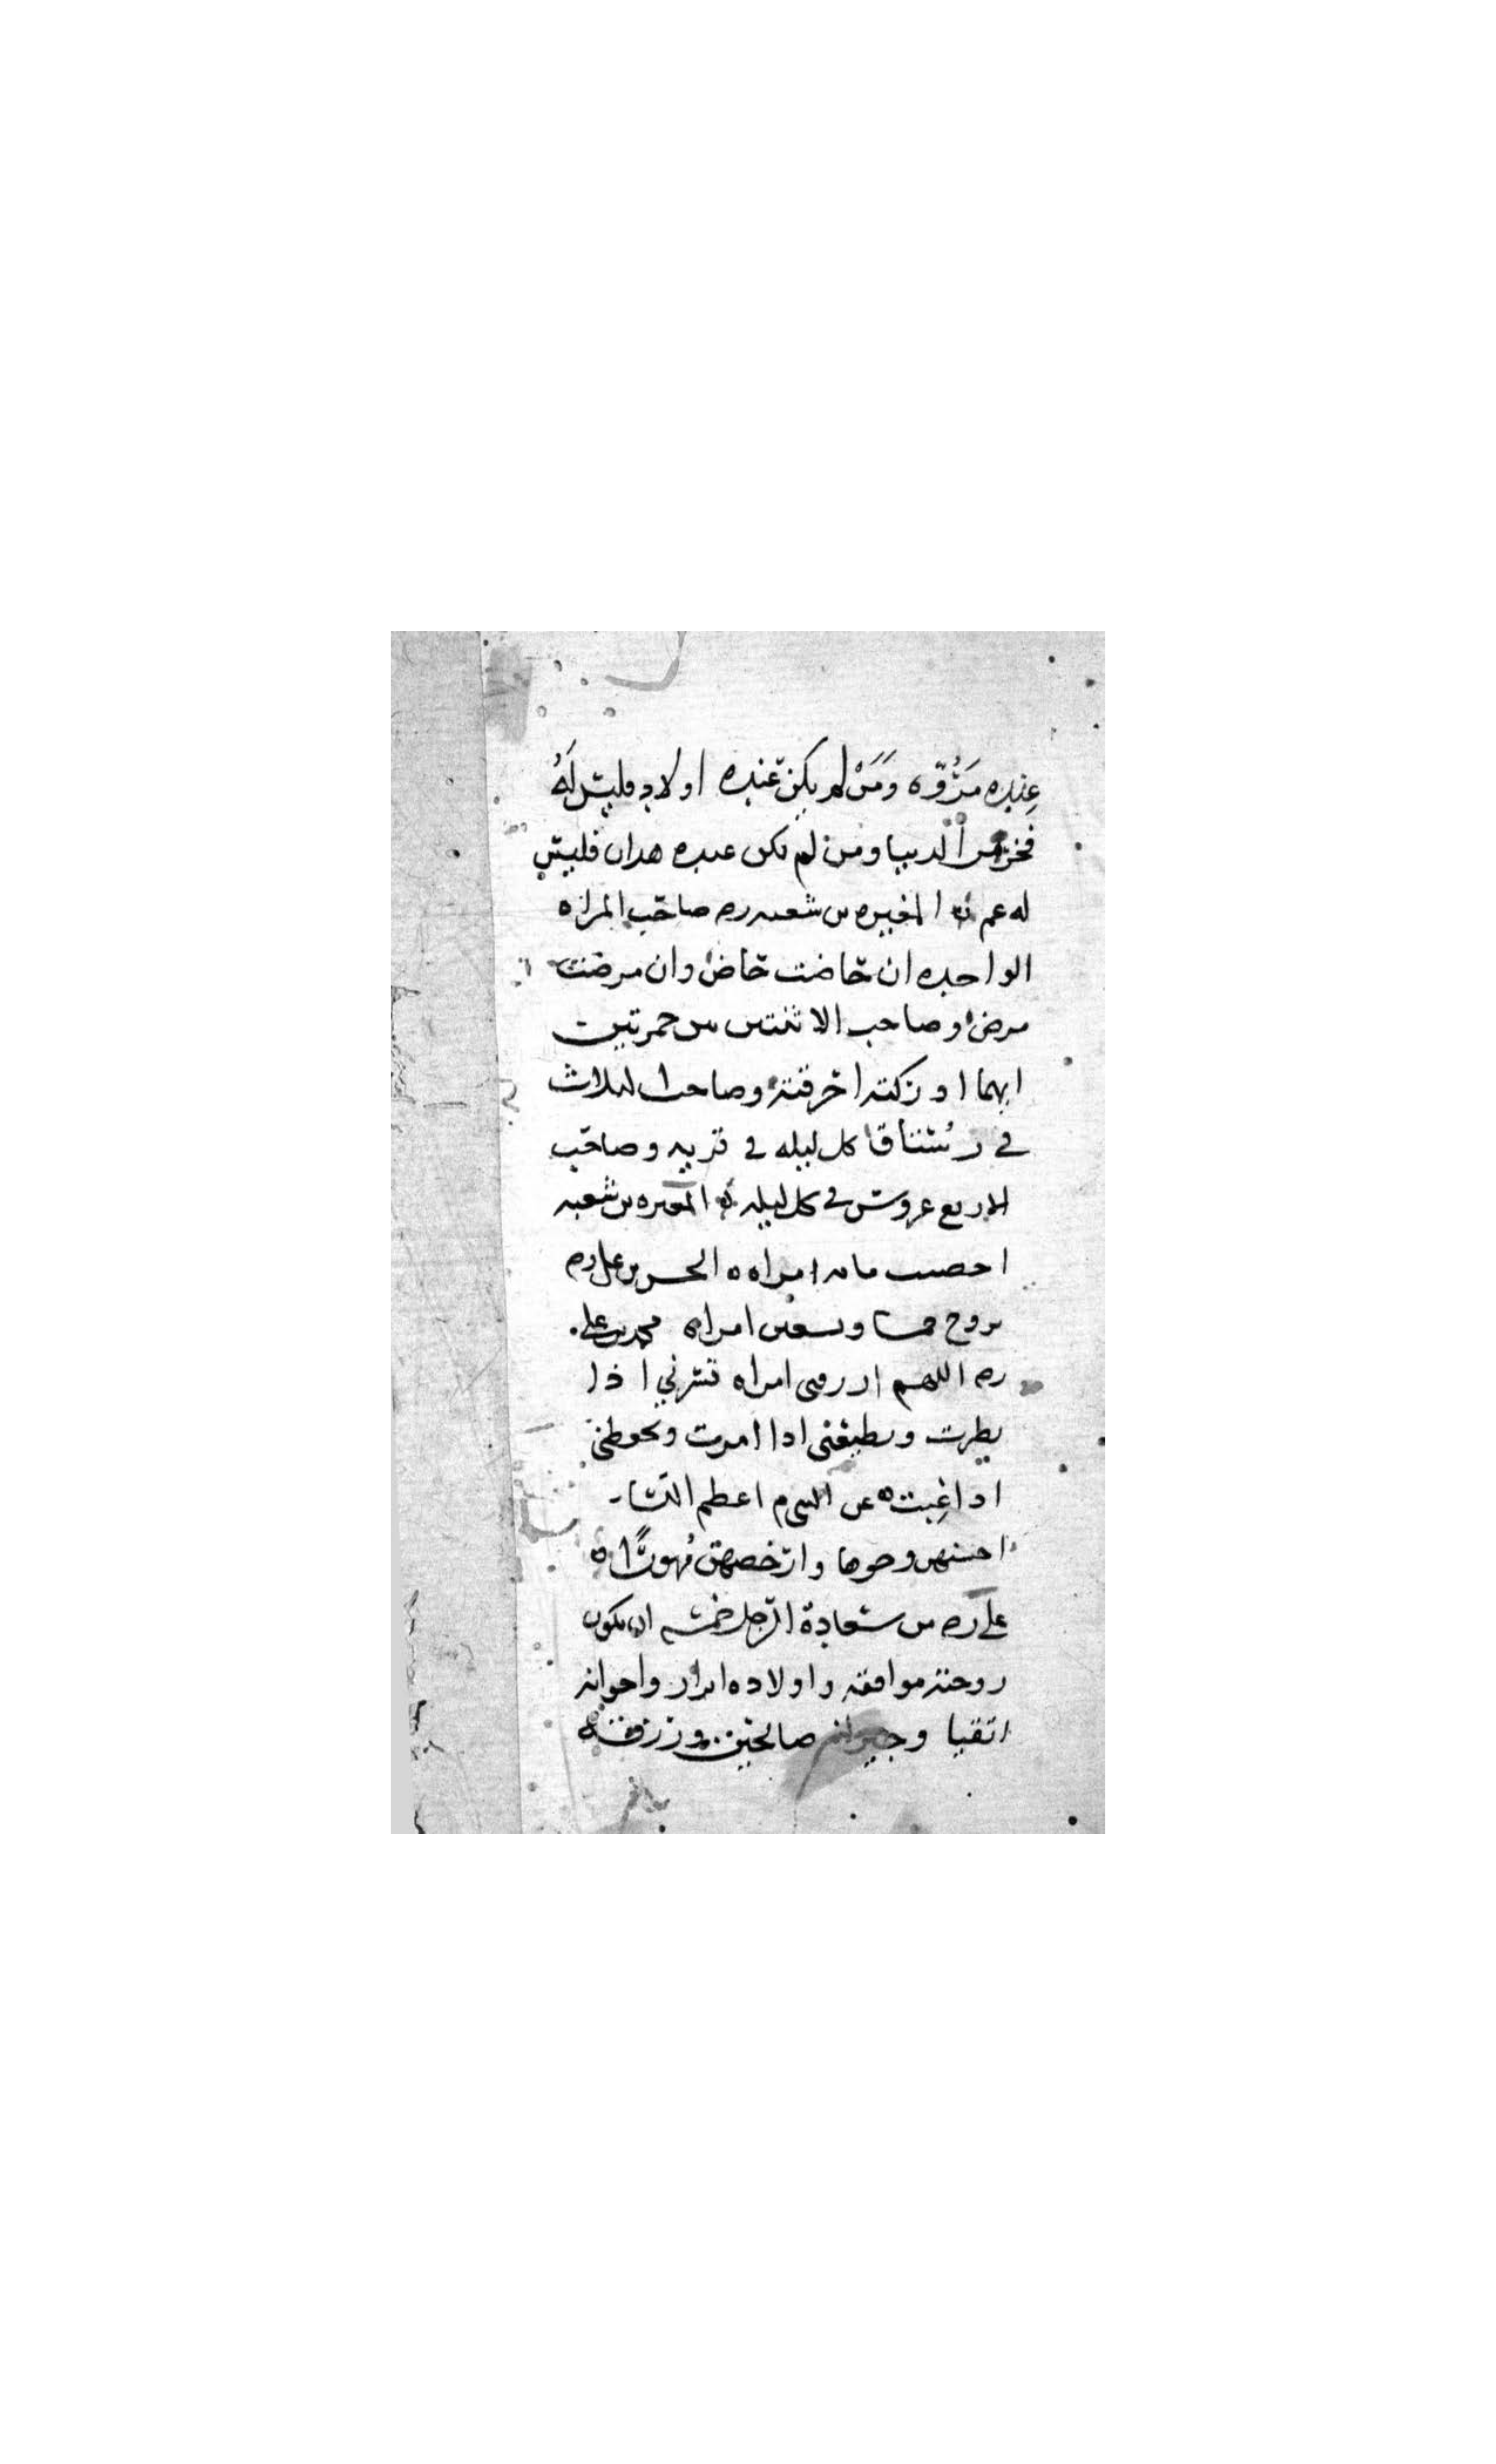 عِنده مَرُوّه وَمَنْ لم يكن عنده اولاد فليس لَهُ
فخر من الدنيا ومن لم يكن عنده هدان فليس
له عم ه المغيره بن شعبه ره صاحب المراه
الواحده ان حاضت حاض وان مرضت
مرض وصاحب الاثنتين بين جمرتين
ايهما ادركته احرقته وصاحب الثلاث
في رُستاق كل ليله في قريه وصاحب
الاربع عروس في كل ليله ه المغيره بن شعبه
احصنت مامه امراه ه الحسن بن علي ره
تزوج خمسا وتسعين امراه محمد بن علي
ره اللهم ارزقني امراه تسرني اذا
نظرت وتطيعني اذا امرت وتحفظني
اذا غِبت ه عن النبي م اعظم النسا
احسنهن وجوها وارخصهن مُهورًا ه
علي ره من سعادة الرجل خمسه ان يكون
زوجته موافقه واولاده ابرار واخوانه
اتقيا وجيرانه صالحين ورزقه